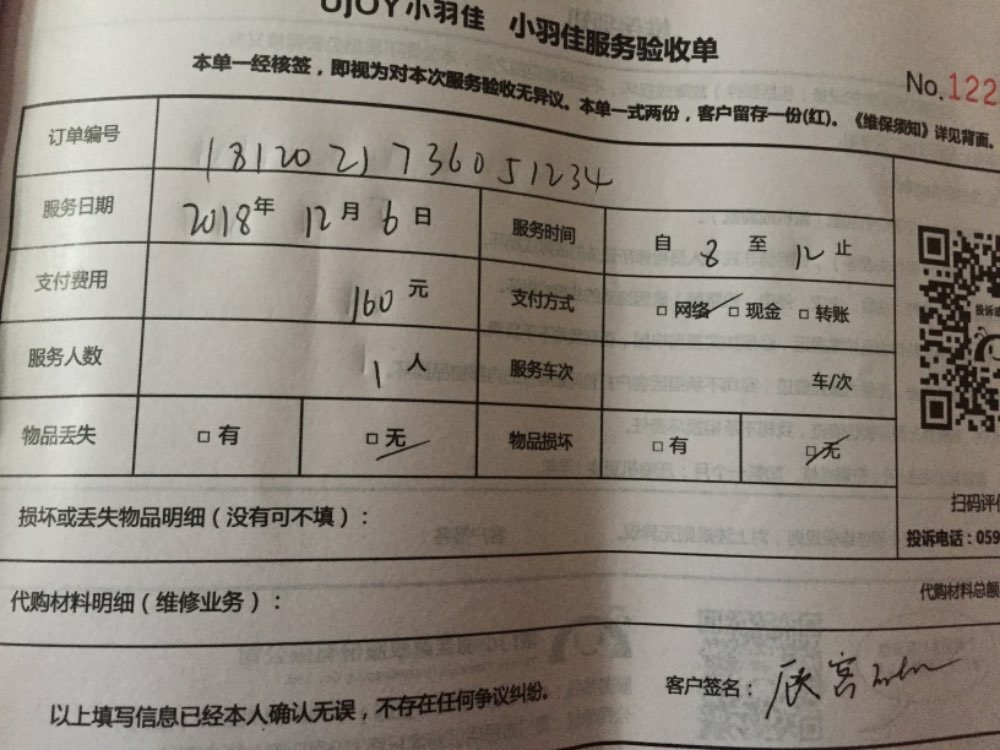 UJOY小羽佳 小羽佳服务验收单
本单一经核签，即视为对本次服务验收无异议。本单一式两份，客户留存一份(红)。《维保须知》详见背面。
No.122
订单编号 1812021736051234
服务日期 2018年 12月 6日 服务时间 自 8 至 12 止
支付费用 160元 支付方式 □网络 □现金 □转账
服务人数 1人 服务车次 车/次
物品丢失 □有 □无 物品损坏 □有 □无
损坏或丢失物品明细（没有可不填）：
扫码评
投诉电话：059
代购材料明细（维修业务）：
代购材料总额
以上填写信息已经本人确认无误，不存在任何争议纠纷。
客户签名：